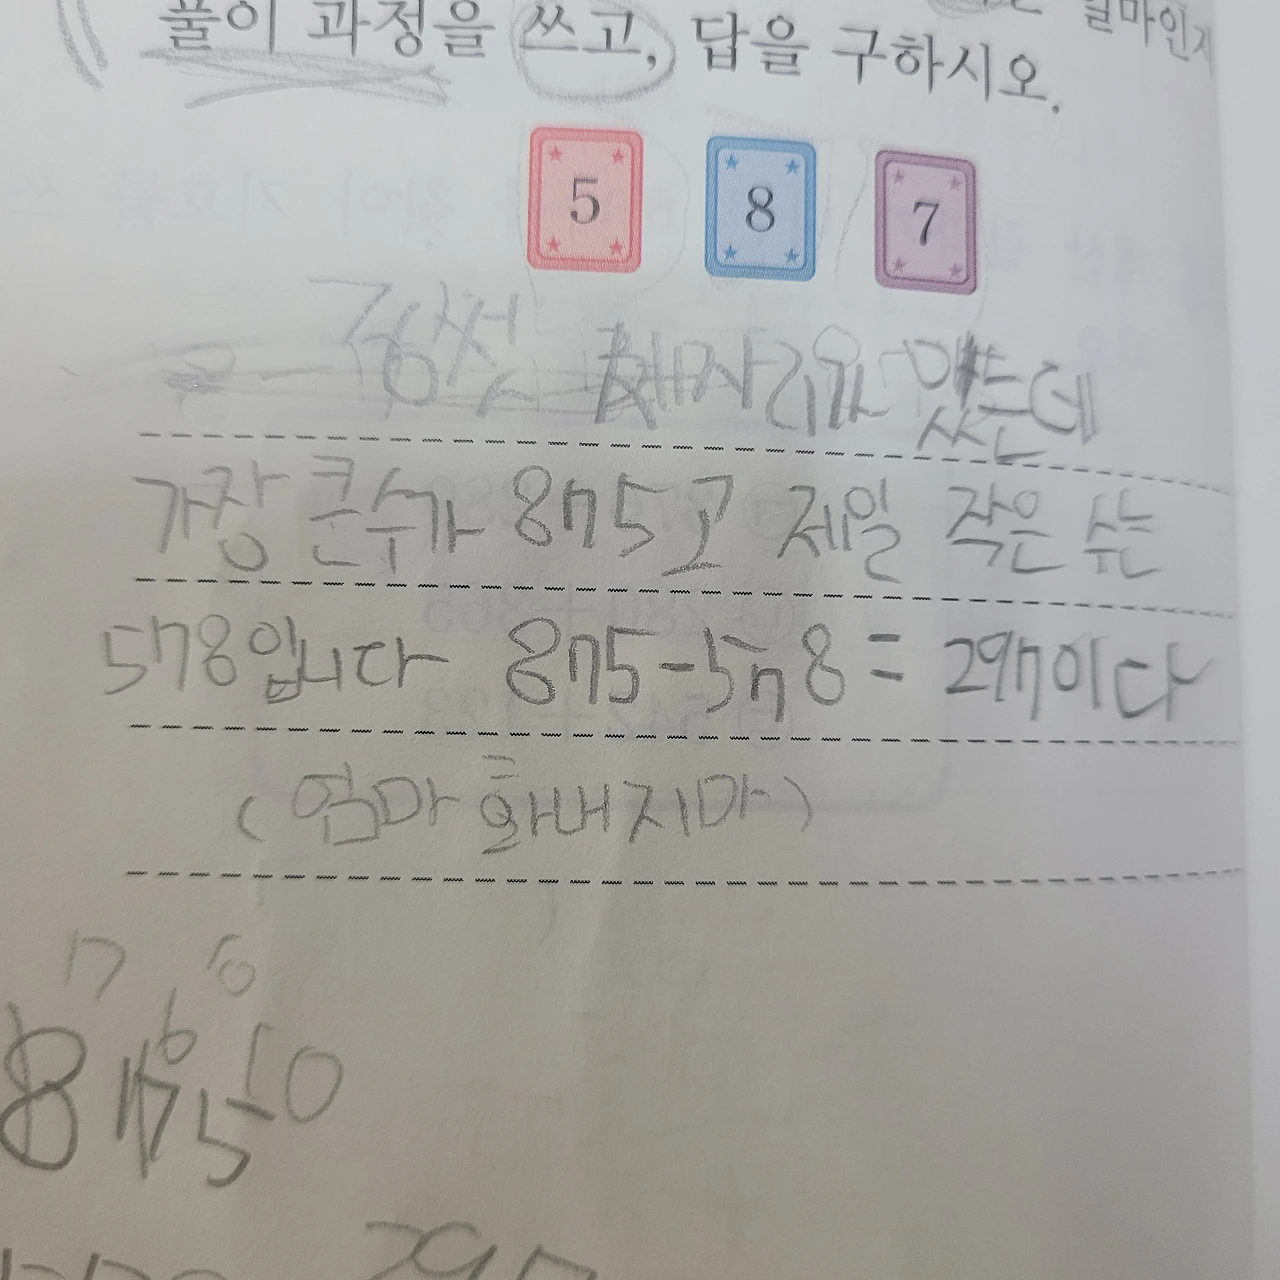 얼마인지
풀이 과정을 쓰고, 답을 구하시오.
5 8 7
가장 큰수가 875고 제일 작은 수는
578입니다 875-578=297이다
(엄마 화내지마)
17 6
6
875 10
297